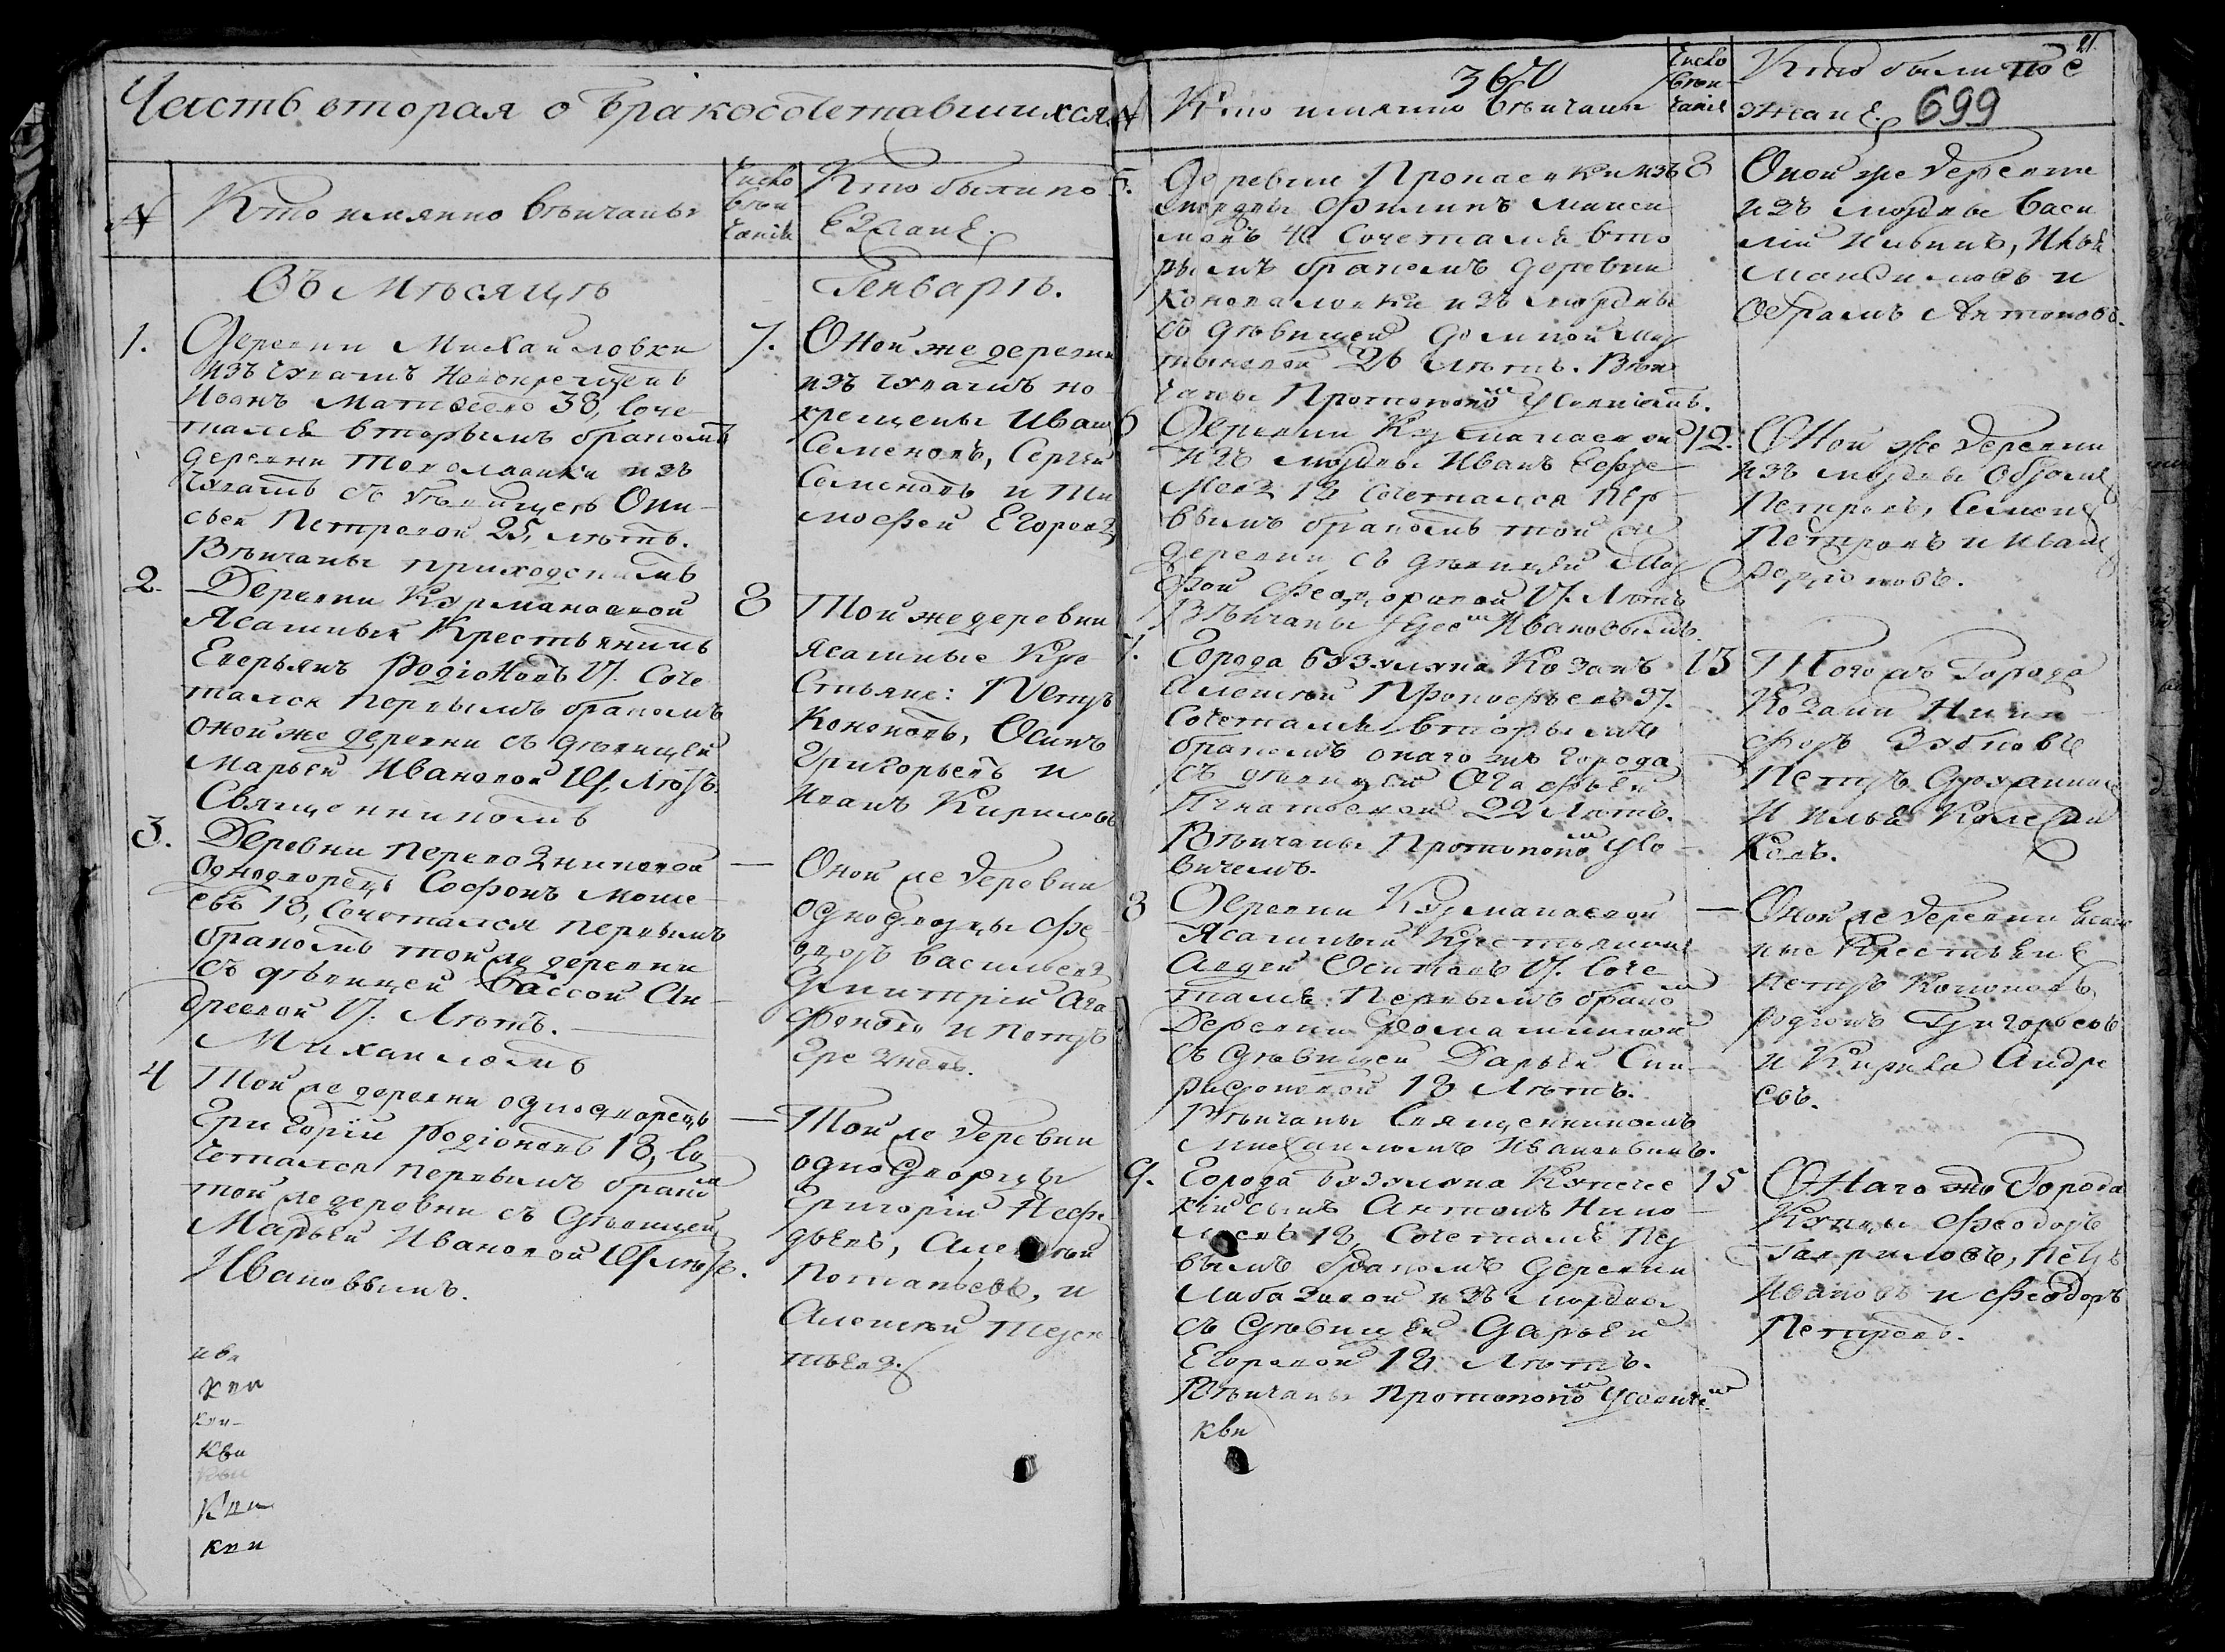 Часть вторая о бракосочетавшихся
№
Кто имянно венчаны
Число
вен
чания
Кто были по
езжане
Въ Мѣсяцѣ
Генварѣ.
1.
Деревни Михайловки
изъ чувашъ новокрещенъ
Иванъ Матвеевъ 38, соче
тался вторымъ бракомъ
деревни изъ
чувашъ съ дѣвицею Они
сьей Петровой 25, лѣтъ.
Вѣнчаны приходскимъ
7.
Оной же деревни
изъ чувашъ но
крещены Иванъ
Семеновъ, Сергей
Семеновъ и Ти
мофей Егоровъ
2.
Деревни Курмановской
Ясашный Крестьянинъ
Еверьянъ Родіоновъ 17. соче
тался первымъ бракомъ
оной же деревни съ дѣвицей
Марьей Ивановой лѣтъ.
Священникомъ
8
Той же деревни
ясашные Кре
стьяне: Петръ
Кононовъ, Осипъ
Григорьевъ и
Иванъ Кириловъ
3.
Деревни Перевозниковой
Однодворецъ Софонъ Моисе
евъ 18, Сочетался первымъ
бракомъ той же деревни
съ дѣвицей Вассой Ан
дреевой 17. Лѣтъ.
Михаиломъ
—
Оной же деревни
однодворцы Фе
доръ Васильевъ
Димитрій Ага
фоновъ и Петръ
4
Той же деревни однодворецъ
Григорій Родіоновъ 18, со
четался первымъ брако
той же деревни съ Дѣвицей
Марьей Ивановой лѣтъ.
Ивановымъ.
—
Той же деревни
однодворцы
Григорій Нефе
дьевъ, Алексѣй
Потапьевъ, и
Алексѣй Терен
тьевъ.
кви
кви
кви
кви
кви
21.
360
699
№
Кто имянно венчаны
Число
вен
чания
Кто были пое
зжане
5.
Деревни Пронаевки изъ
мордвы Филипъ Макси
мовъ 40 Сочетался вто
рымъ бракомъ деревни
Коноваловки изъ мордвы
съ дѣвицей Домной Мар
тыновой 26 лѣтъ. Вѣн
чаны Протопопом
8
Оной же деревни
изъ мордвы Васи
лій Ильинъ, Илья
Максимовъ и
Обрамъ Антоновъ.
6
Деревни Курманаевской
изъ мордвы Иванъ Ефре
мовъ 18 Сочетался пер
вымъ бракомъ той же
деревни, съ дѣвицей Мар
фой Феодоровой 17. Лѣтъ
Вѣнчаны Ивановымъ
12.
Оной же деревни
изъ мордвы
Петровъ, Семенъ
Петровъ и Иванъ
Родіоновъ.
7.
Города Бузулука Козакъ
Алексѣй Прокофьевъ 37.
Сочетался вторымъ
бракомъ онаго жъ города
съ дѣвицей Огафьей
Игнатьевой 22 Лѣтъ.
Вѣнчаны Протопопом Усо
вичемъ.
13
Того жъ Города
Козаки Ники
форъ Зубковъ
Петръ
и Илья Колесни
ковъ.
8
Деревни Курманаевской
Ясашный Крестьянинъ
Авдей Осиповъ 17. Соче
тался Первымъ брако
деревни Ромашкиной
съ дѣвицей Дарьей Спи
ридоновой 18 Лѣтъ.
Вѣнчаны Священникомъ
Михаиломъ Ивановымъ.
—
Оной же деревни Ясаш
ные Крестьяне
Петръ Кононовъ,
Родіонъ Григорьевъ
и Кирила Андре
евъ.
9.
Города Бузулука Купече
скій сынъ Антонъ Нико
лаевъ 18, Сочетался Пер
вымъ бракомъ деревни
Лабазовой изъ мордвы
съ Дѣвицей Дарьей
Егоровой 18 Лѣтъ.
Вѣнчаны Протопопом Усовиче
кви
15
Онаго жъ Города
Купцы Феодоръ
Гавриловъ, Петръ
Ивановъ и Феодоръ
Петровъ.